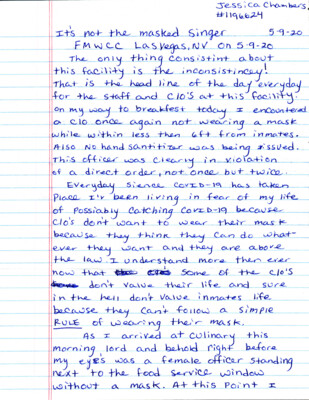 Jessica Chambers,
#1196624
It's not the masked Singer 5-9-20
FMWCC Las Vegas, NV on 5-9-20
The only thing consistint about
this facility is the inconsistincey!
That is the head line of the day everyday
for the staff and C/O's at this facility
on my way to breakfast today I encountered
a C/O once again not wearing a mask
while within less then 6ft from inmates.
Also No hand santitizer was being issued.
This officer was clearly in violation
of a direct order, not once but twice.
Everyday sience COVID-19 has taken
place I'v been living in fear of my life
of possiably catching COVID-19 because
C/O's don't want to wear their mask
because they think they can do what-
ever they want and they are above
the law. I understand more then ever
now that some of the C/O's
don't value their life and sure
in the hell don't value inmates life
because they can't follow a simple
RULE of wearing their mask.
As I arrived at culinary this
morning lord and behold right before
my eyes was a female officer standing
next to the food service window
without a mask. At this point I